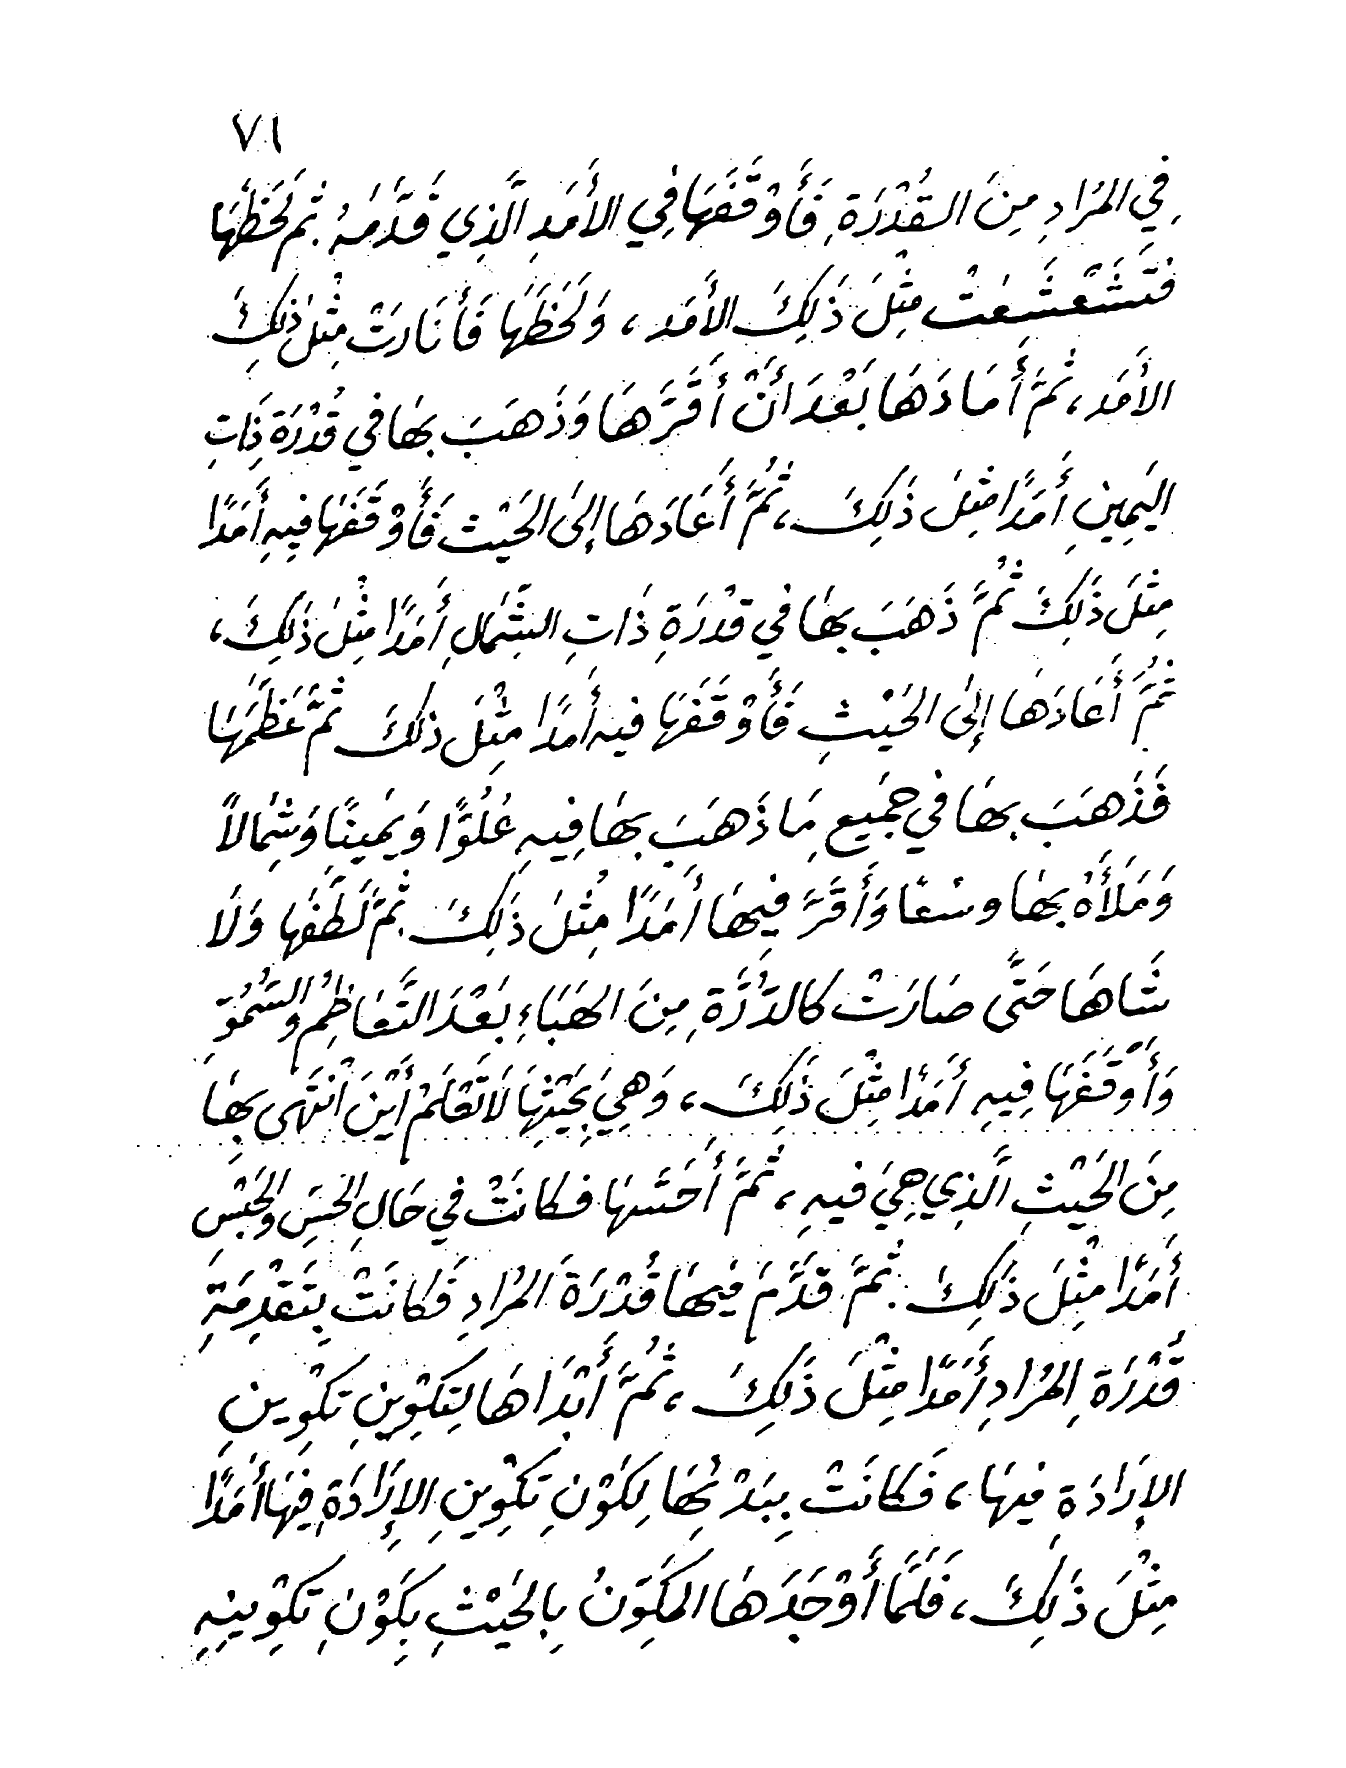 ٧١
فِي المُرَادِ مِنَ القُدْرَةِ فَأَوْقَفَهَا فِي الأَمَدِ الَّذِي قَدَّمَهُ. ثُمَّ لَحَظَهَا
فَتَشَعْشَعَتْ مِثْلَ ذَلِكَ الأَمَد، وَلَحَظَهَا فَأَنَارَتْ مِثْلَ ذَلِكَ
الأَمَد، ثُمَّ أَمَادَهَا بَعْدَ أَنْ أَقَرَّهَا وَذَهَبَ بِهَا فِي قُدْرَةِ ذَاتِ
اليَمِينِ أَمَدًا مِثْلَ ذَلِكَ، ثُمَّ أَعَادَهَا إِلَى الحَيْثِ فَأَوْقَفَهَا فِيهِ أَمَدًا
مِثْلَ ذَلِكَ ثُمَّ ذَهَبَ بِهَا فِي قُدْرَةِ ذَاتِ الشِّمَالِ أَمَدًا مِثْلَ ذَلِكَ،
ثُمَّ أَعَادَهَا إِلَى الحَيْثِ فَأَوْقَفَهَا فِيهِ أَمَدًا مِثْلَ ذَلِكَ ثُمَّ عَظَّمَهَا
فَذَهَبَ بِهَا فِي جَمِيعِ مَا ذَهَبَ بِهَا فِيهِ عُلُوًّا وَيَمِينًا وَشِمَالاً
وَمَلَأَهُ بِهَا وسْعًا وَأَقَرَّ فِيهَا أَمَدًا مِثْلَ ذَلِكَ. ثُمَّ لَطَّفَهَا وَلَا
شَاهَا حَتَّى صَارَتْ كالذَّرَّةِ مِنَ الهَبَاءِ بَعْدَ التَّعَاظُمِ والسُّمُوِّ
وَأَوْقَفَهَا فِيهِ أَمَدًا مِثْلَ ذَلِكَ، وَهِيَ بِحَيْثِهَا لَا تَعْلَمْ أَيْنَ انْتَهَى بِهَا
مِنَ الحَيْثِ الَّذِي هِيَ فِيهِ، ثُمَّ أَحَسَّهَا فَكَانَتْ فِي حَالِ الحِسِّ والحَبْسِ
أَمَدًا مِثْلَ ذَلِكَ. ثُمَّ قَدَّمَ فِيهَا قُدْرَةَ المُرَادِ فَكَانَتْ بِتَقْدِمَةِ
قُدْرَةِ المُرَادِ أَمَدًا مِثْلَ ذَلِكَ، ثُمَّ أَبْدَاهَا لِتَكْوِينِ تَكْوِينِ
الإِرَادَةِ فِيهَا، فَكَانَتْ بِبَدْئِهَا لِكَوْنِ تَكْوِينِ الإِرَادَةِ فِيهَا أَمَدًا
مِثْلَ ذَلِكَ، فَلَمَّا أَوْجَدَهَا المُكَوِّنُ بِالحَيْثِ بِكَوْنِ تَكْوِينِهِ